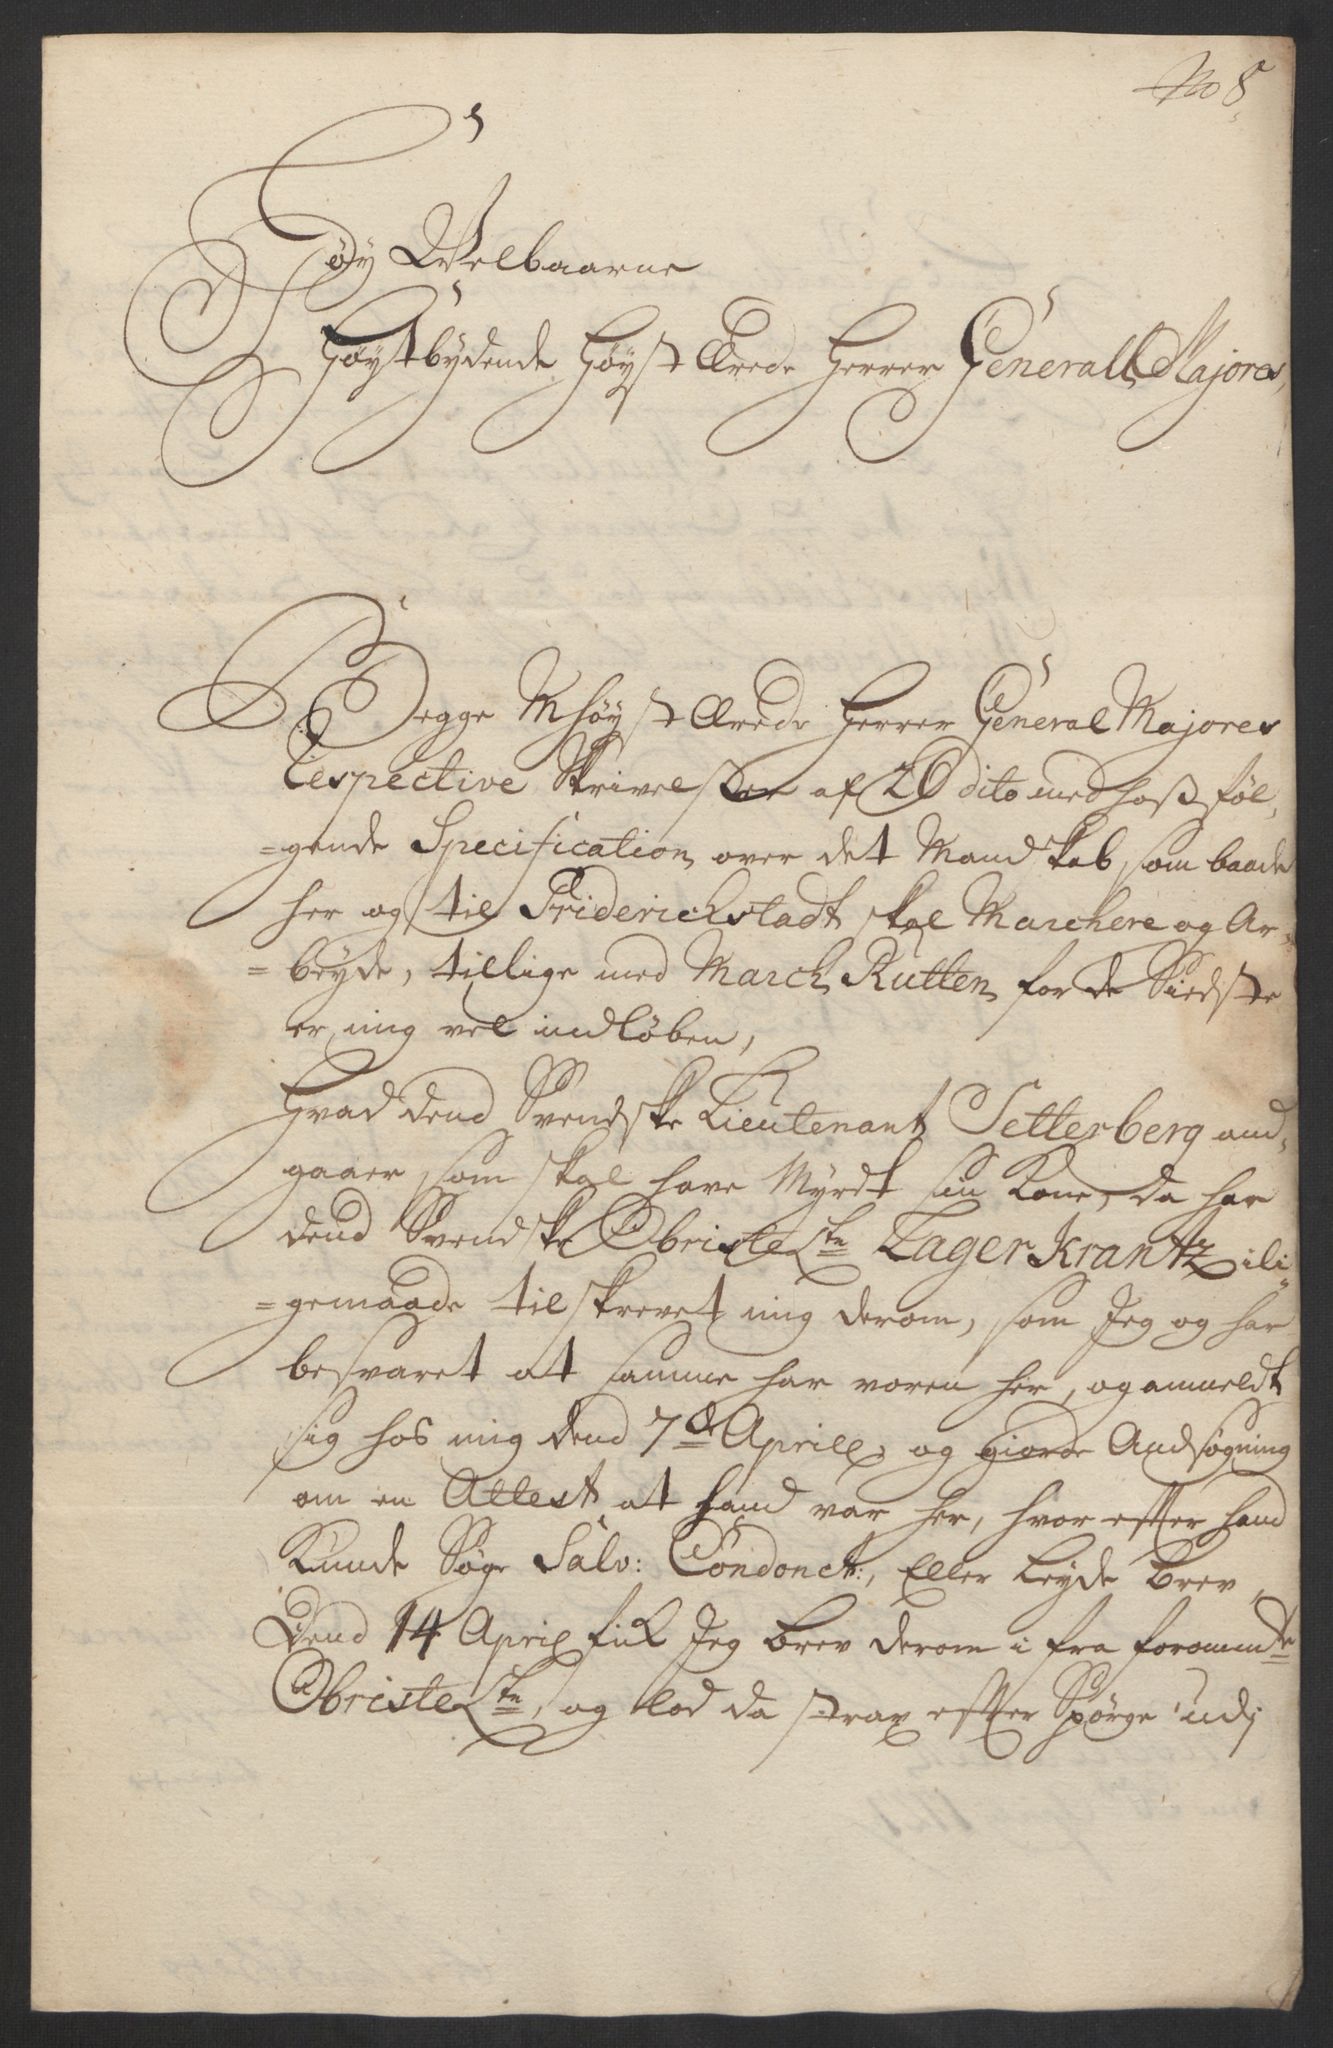 No 8.
Høy Welbaarne
Høystbydende Høyst Ærede Herrer Generall Majores,
Begge Mhøyst Ærede Herrer General Majores
Respective Skrivelser af 20 dito med hoss føl,
=gende Specification over det Mandskab, som baade
her og til Friderichstadt skal Marchere og Ar=
=beyde, tillige med March Rutten for de Siedste
er mig vel indløben,
Hvad dend Svendske Lieutenant Setterberg and,
gaaer som skal have Myrdt sin Kone, da har
dend Svendske Obriste Ltn Lager Krantz ili
=gemaade tilskrevet mig derom, som Jeg og har
besvaret at samme har voren her, og anmeldt
sig hos mig dend 7de Aprill, og giorde Andsøgning
om en Attest at hand var her, hvor effter hand
Kunde Søge Salv: Condonct:, Eller Leyde Brev,
Dend 14 April fik Jeg brev derom i fra forommte
Obriste Ltn, og lod da strax effter Spørge udj